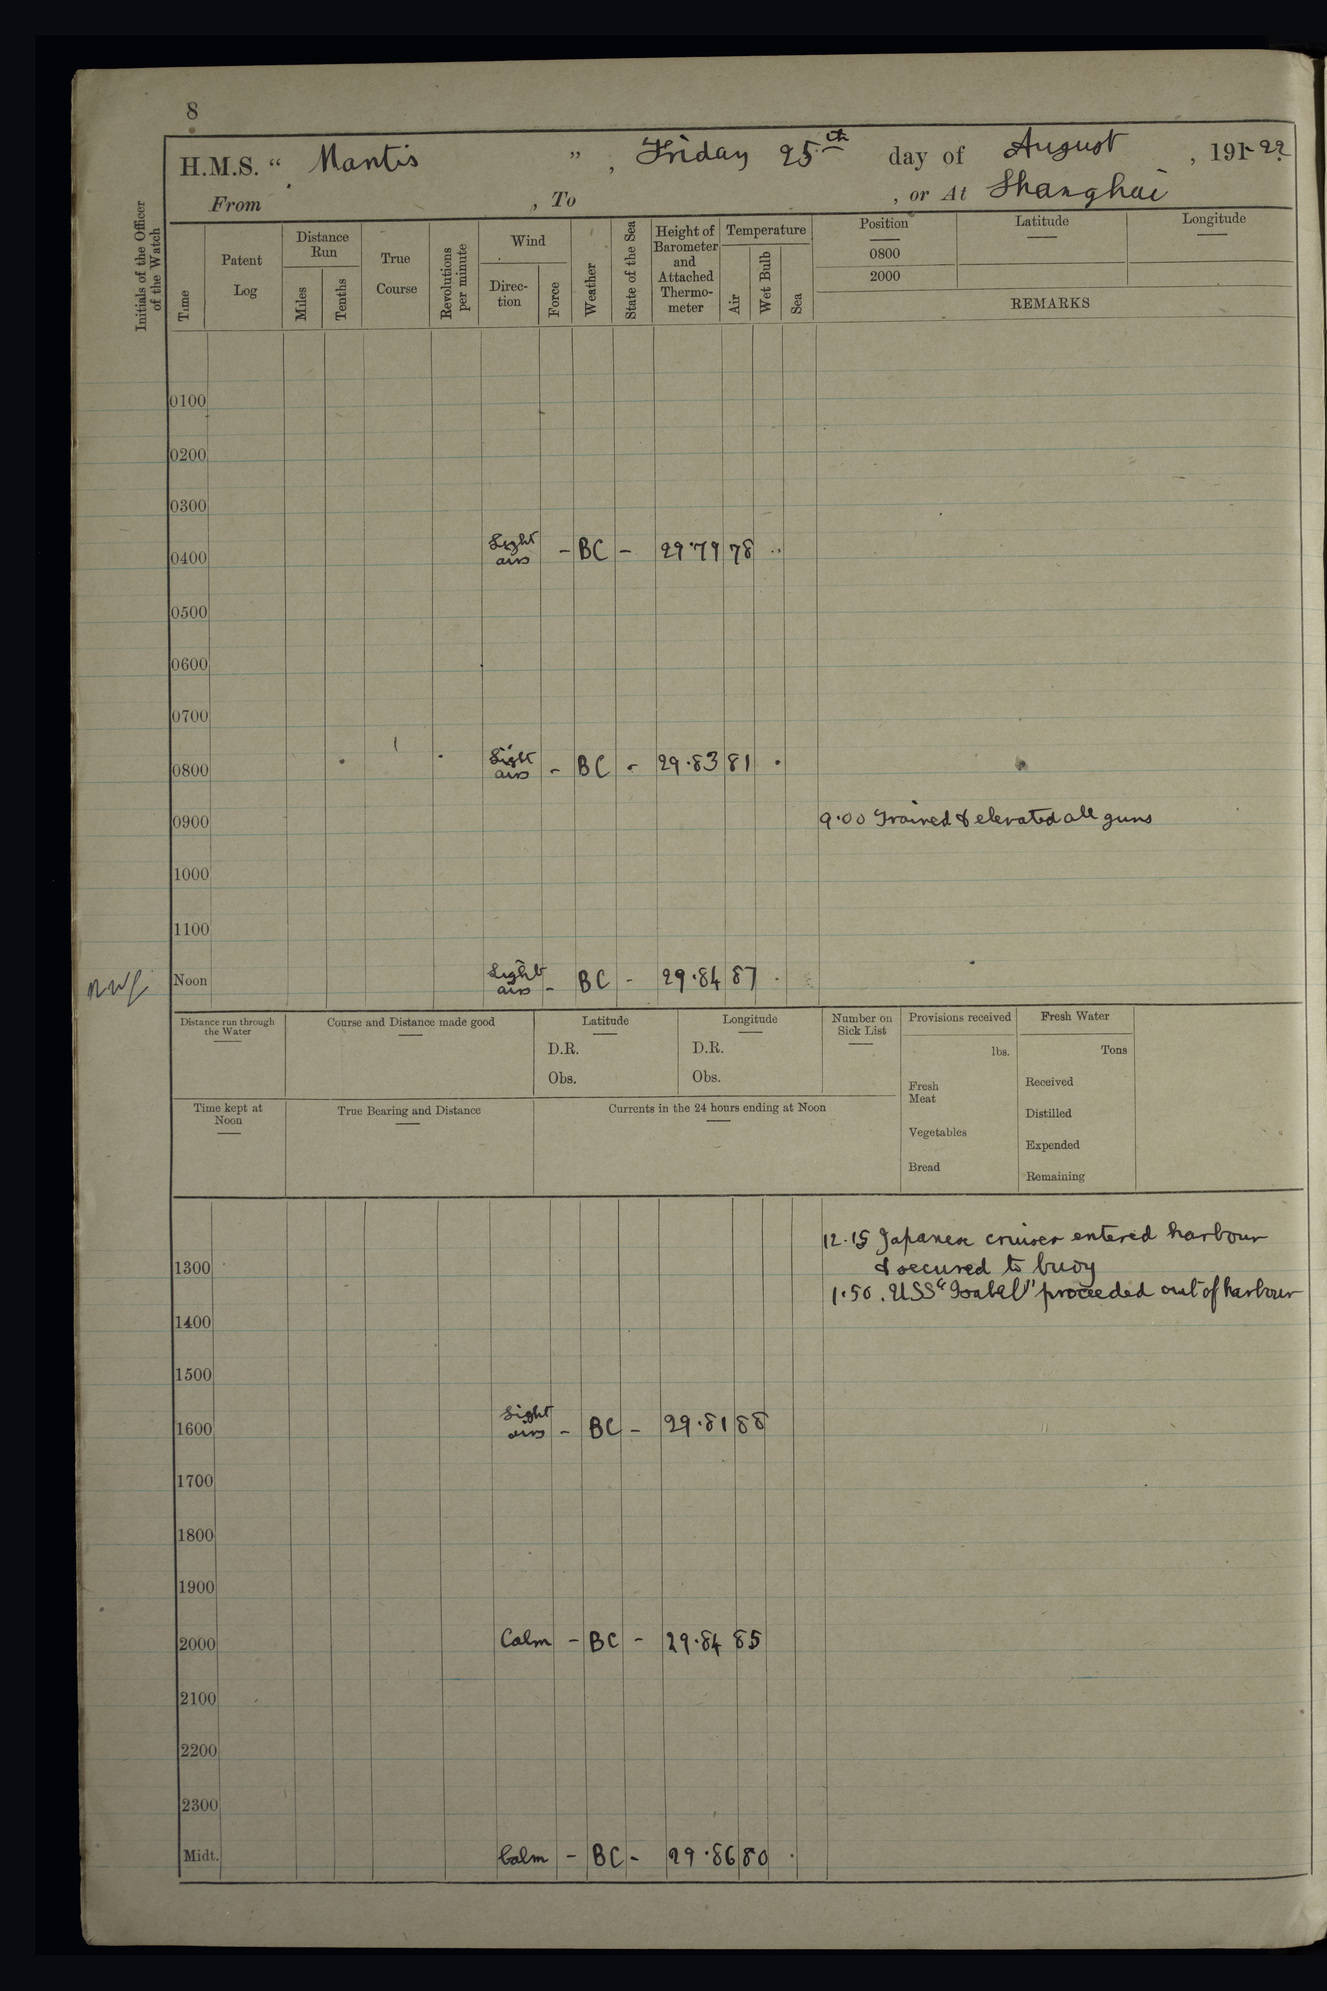 8
H.M.S. “ Mantis ”, Friday 25th day of August, 191-22
From , To , or At Shanghai
Initials of the Officer of the Watch
Time
Patent Log
Distance Run
Miles
Tenths
True Course
Revolutions per minute
Wind
Direc-tion
Force
Weather
State of the Sea
Height of Barometer and Attached Thermo-meter
Temperature
Air
Wet Bulb
Sea
Position
0800
2000
Latitude
Longitude
REMARKS
0100
0200
0300
0400 Light airs - BC - 29.79 78
0500
0600
0700
0800 Light airs - BC - 29.83 81
0900 9.00 Trained & elevated all guns
1000
1100
Noon Light airs - BC - 29.84 87
Distance run through the Water
Course and Distance made good
Latitude
D.R.
Obs.
Longitude
D.R.
Obs.
Number on Sick List
Provisions received
lbs.
Fresh Meat
Vegetables
Bread
Fresh Water
Tons
Received
Distilled
Expended
Remaining
Time kept at Noon
True Bearing and Distance
Currents in the 24 hours ending at Noon
12.15 Japanese cruiser entered harbour
1300 & secured to buoy
1.50. USS "Isabel" proceeded out of harbour
1400
1500
1600 Light airs - BC - 29.81 88
1700
1800
1900
2000 Calm - BC - 29.84 85
2100
2200
2300
Midt. Calm - BC - 29.86 80